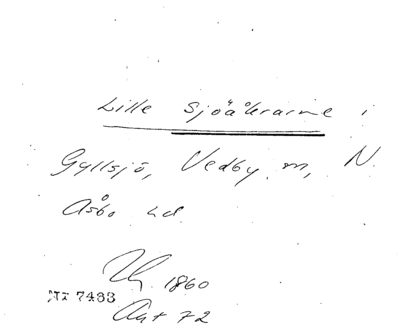 Lille Sjöåkrarne i
Gyllsjö, Vedby m, N.
Åsbo hd.
1860
Nr 7433
Akt 72